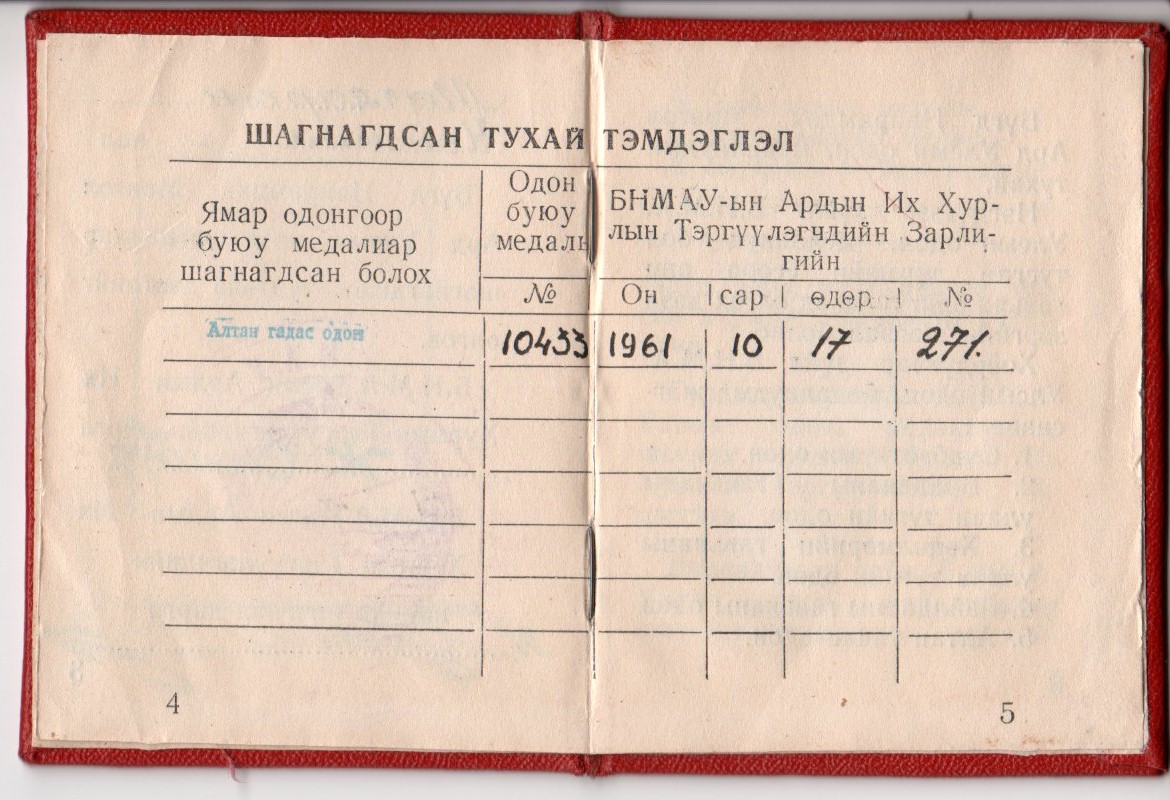 ШАГНАГДСАН ТУХАЙ ТЭМДЭГЛЭЛ
Ямар одонгоор
буюу медалиар
шагнагдсан болох
Одон
буюу
медаль
№
БНМАУ-ын Ардын Их Хур-
лын Тэргүүлэгчдийн Зарли-
гийн
Он сар өдөр №
Алтан гадас одон 10433 1961 10 17 271.
4
5